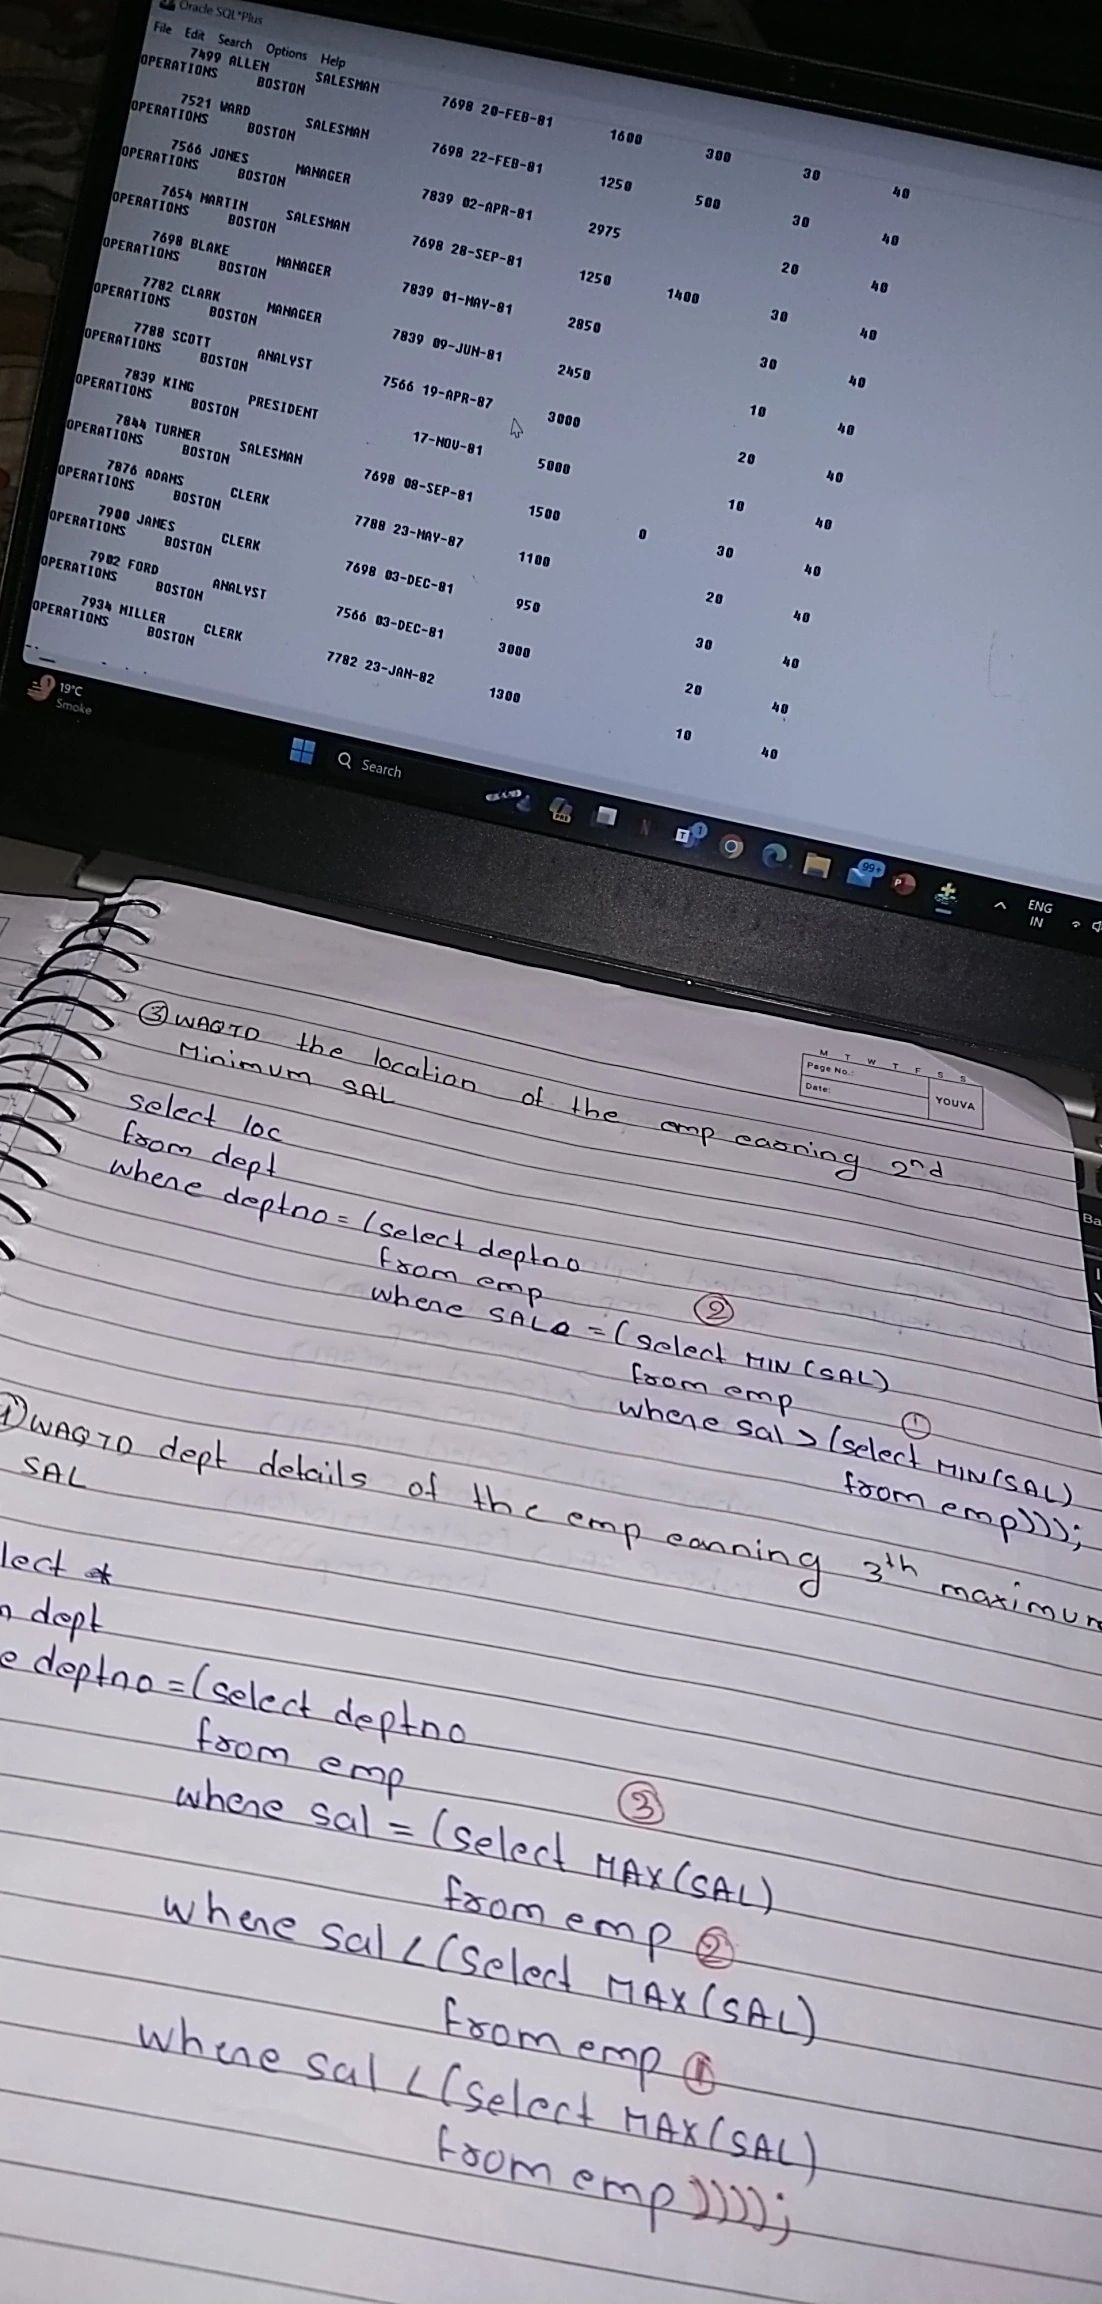 Oracle SQL*Plus
File Edit Search Options Help
7499 ALLEN SALESMAN 7698 20-FEB-81 1600 300 30 40
OPERATIONS BOSTON
7521 WARD SALESMAN 7698 22-FEB-81 1250 500 30 40
OPERATIONS BOSTON
7566 JONES MANAGER 7839 02-APR-81 2975 20 40
OPERATIONS BOSTON
7654 MARTIN SALESMAN 7698 28-SEP-81 1250 1400 30 40
OPERATIONS BOSTON
7698 BLAKE MANAGER 7839 01-MAY-81 2850 30 40
OPERATIONS BOSTON
7782 CLARK MANAGER 7839 09-JUN-81 2450 10 40
OPERATIONS BOSTON
7788 SCOTT ANALYST 7566 19-APR-87 3000 20 40
OPERATIONS BOSTON
7839 KING PRESIDENT 17-NOV-81 5000 10 40
OPERATIONS BOSTON
7844 TURNER SALESMAN 7698 08-SEP-81 1500 0 30 40
OPERATIONS BOSTON
7876 ADAMS CLERK 7788 23-MAY-87 1100 20 40
OPERATIONS BOSTON
7900 JAMES CLERK 7698 03-DEC-81 950 30 40
OPERATIONS BOSTON
7902 FORD ANALYST 7566 03-DEC-81 3000 20 40
OPERATIONS BOSTON
7934 MILLER CLERK 7782 23-JAN-82 1300 10 40
OPERATIONS BOSTON
19°C
Smoke
Search
99+
ENG
IN
M T W T F S S
Page No.:
Date:
YOUVA
③ WAQTD the location of the emp earning 2nd
Minimum SAL
select loc
from dept
where deptno = (select deptno
from emp
where SAL = (select MIN (SAL) ②
from emp
where sal > (select MIN(SAL) ①
from emp)));
WAQTD dept details of the emp earning 3th maximum
SAL
lect *
dept
e deptno = (select deptno
from emp
where sal = (select MAX(SAL) ③
from emp ②
where sal < (select MAX(SAL)
from emp ①
where sal < (select MAX(SAL)
from emp))));